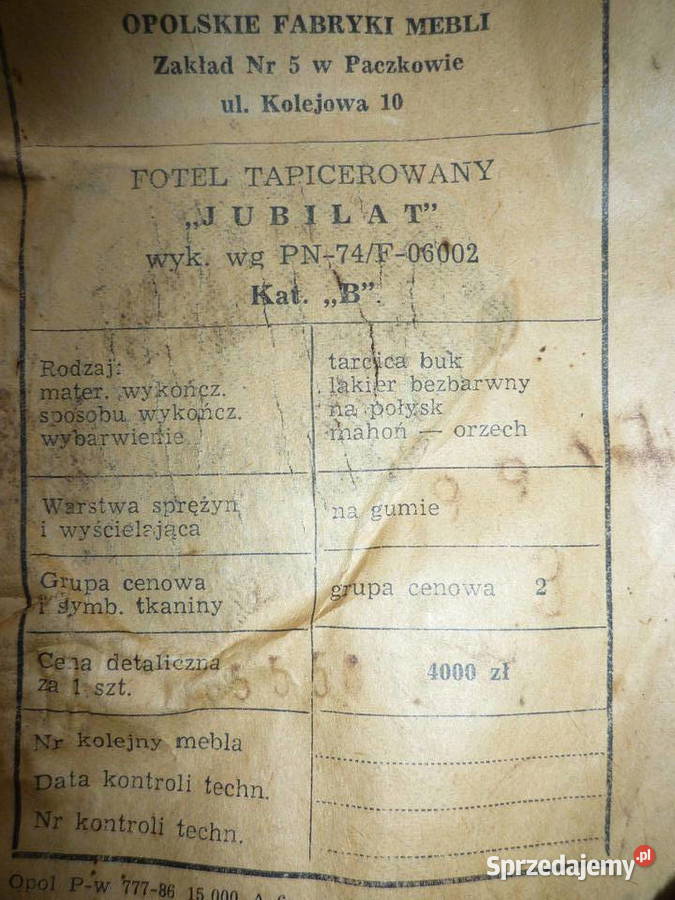 OPOLSKIE FABRYKI MEBLI
Zakład Nr 5 w Paczkowie
ul. Kolejowa 10
FOTEL TAPICEROWANY
„JUBILAT”
wyk. wg PN-74/F-06002
Kat. „B”.
Rodzaj:
mater. wykończ.
sposobu wykończ.
wybarwienie
tarcica buk
lakier bezbarwny
na połysk
mahoń — orzech
Warstwa sprężyn
i wyścielająca
na gumie
Grupa cenowa
i symb. tkaniny
grupa cenowa 2
Cena detaliczna
za 1 szt.
4000 zł
Nr kolejny mebla
Data kontroli techn.
Nr kontroli techn.
Opol P-w 777-86 15.000
Sprzedajemy.pl